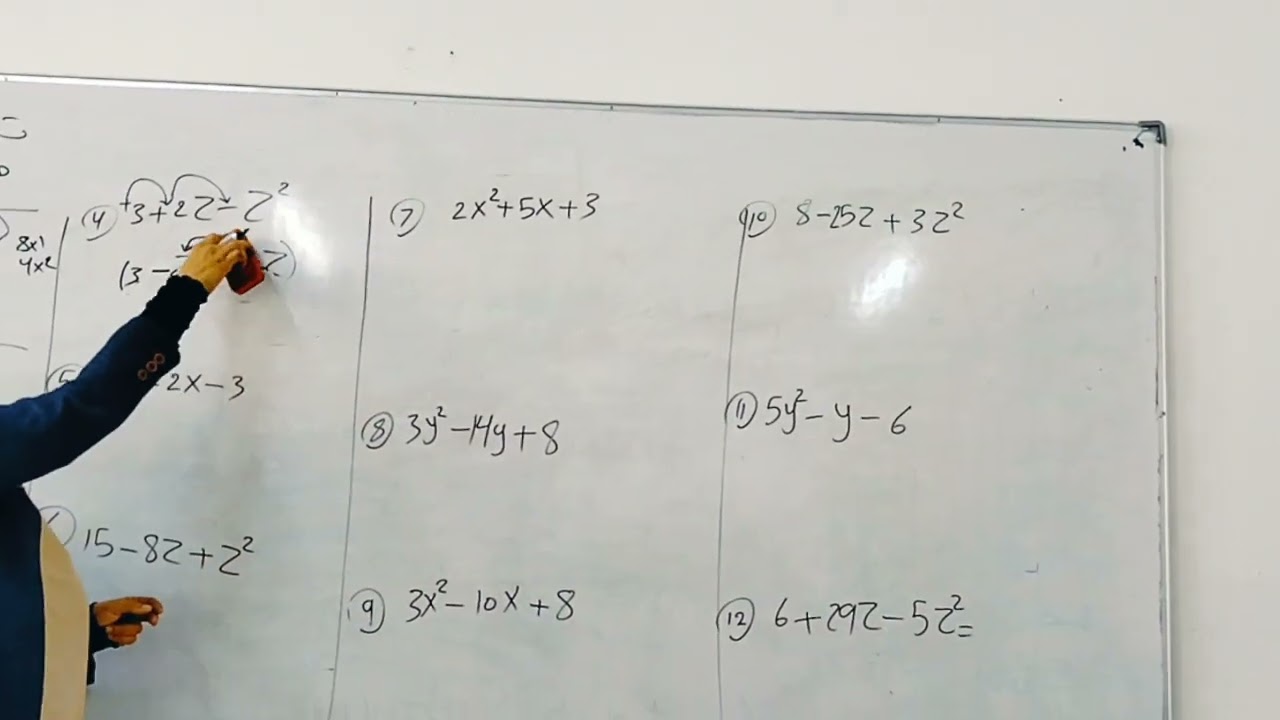 8x1
4x2
④ +3+2Z-Z²
(3 - Z)
2x-3
15-8Z+Z²
⑦ 2x²+5x+3
⑧ 3y²-14y+8
⑨ 3x²-10x+8
⑩ 8-25Z+3Z²
⑪ 5y²-y-6
⑫ 6+29Z-5Z²=